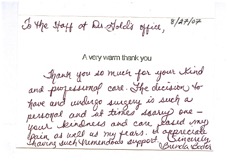 To the Staff of Dr. Gold's office,
8/27/07
A very warm thank you
Thank you so much for your kind
and professional care. The decision to
have and undergo surgery is such a
personal and at times scary one -
your kindness and care eased my
pain as well as my fears. I appreciate
having such tremendous support. Sincerely,
Brenda